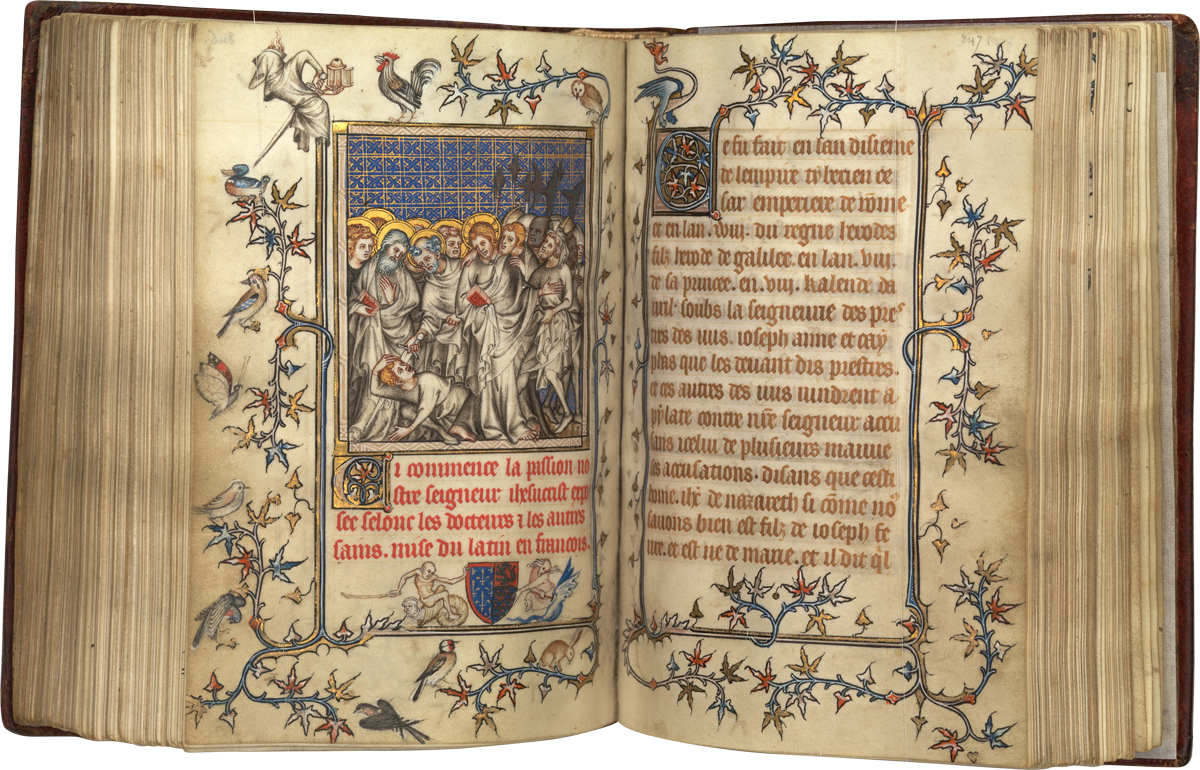 Ci commence la passion no
stre seigneur ihesucrist exp
see selonc les docteurs ⁊ les autres
sains. mise du latin en francois.
Ce fu fait en lan disieme
de lempire tyberien ce
sar emperiere de rōme
et en lan. viii. du regne herodes
filz herode de galilee. en lan. viii.
de sa princee. en. viii. kalende da
uril. soubs la seigneurie des pre
tres des iuis. ioseph anne et cay
phas que les deuant dis prestres.
et ces autres des iuis uindrent a
pylate contre nrē seigneur accu
sans icelui de plusieurs mauue
ses accusations. disans que cesti
home. ihc̄ de nazareth si cōme no9
sauons bien est filz de ioseph fe
ure. et est ne de marie. et il dit ql̄